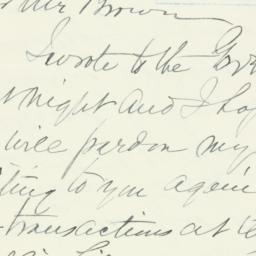 Mr Brown
I wrote to the Gov
night and I hop
will pardon my
ting to you again
transactions at te